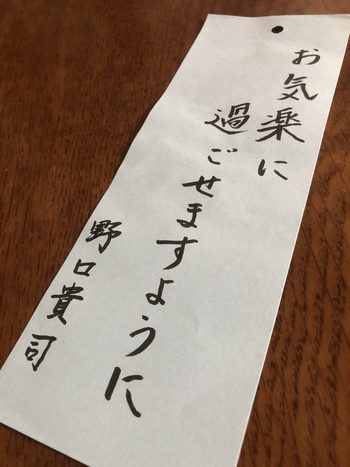 お気楽に
過ごせますように
野口貴司